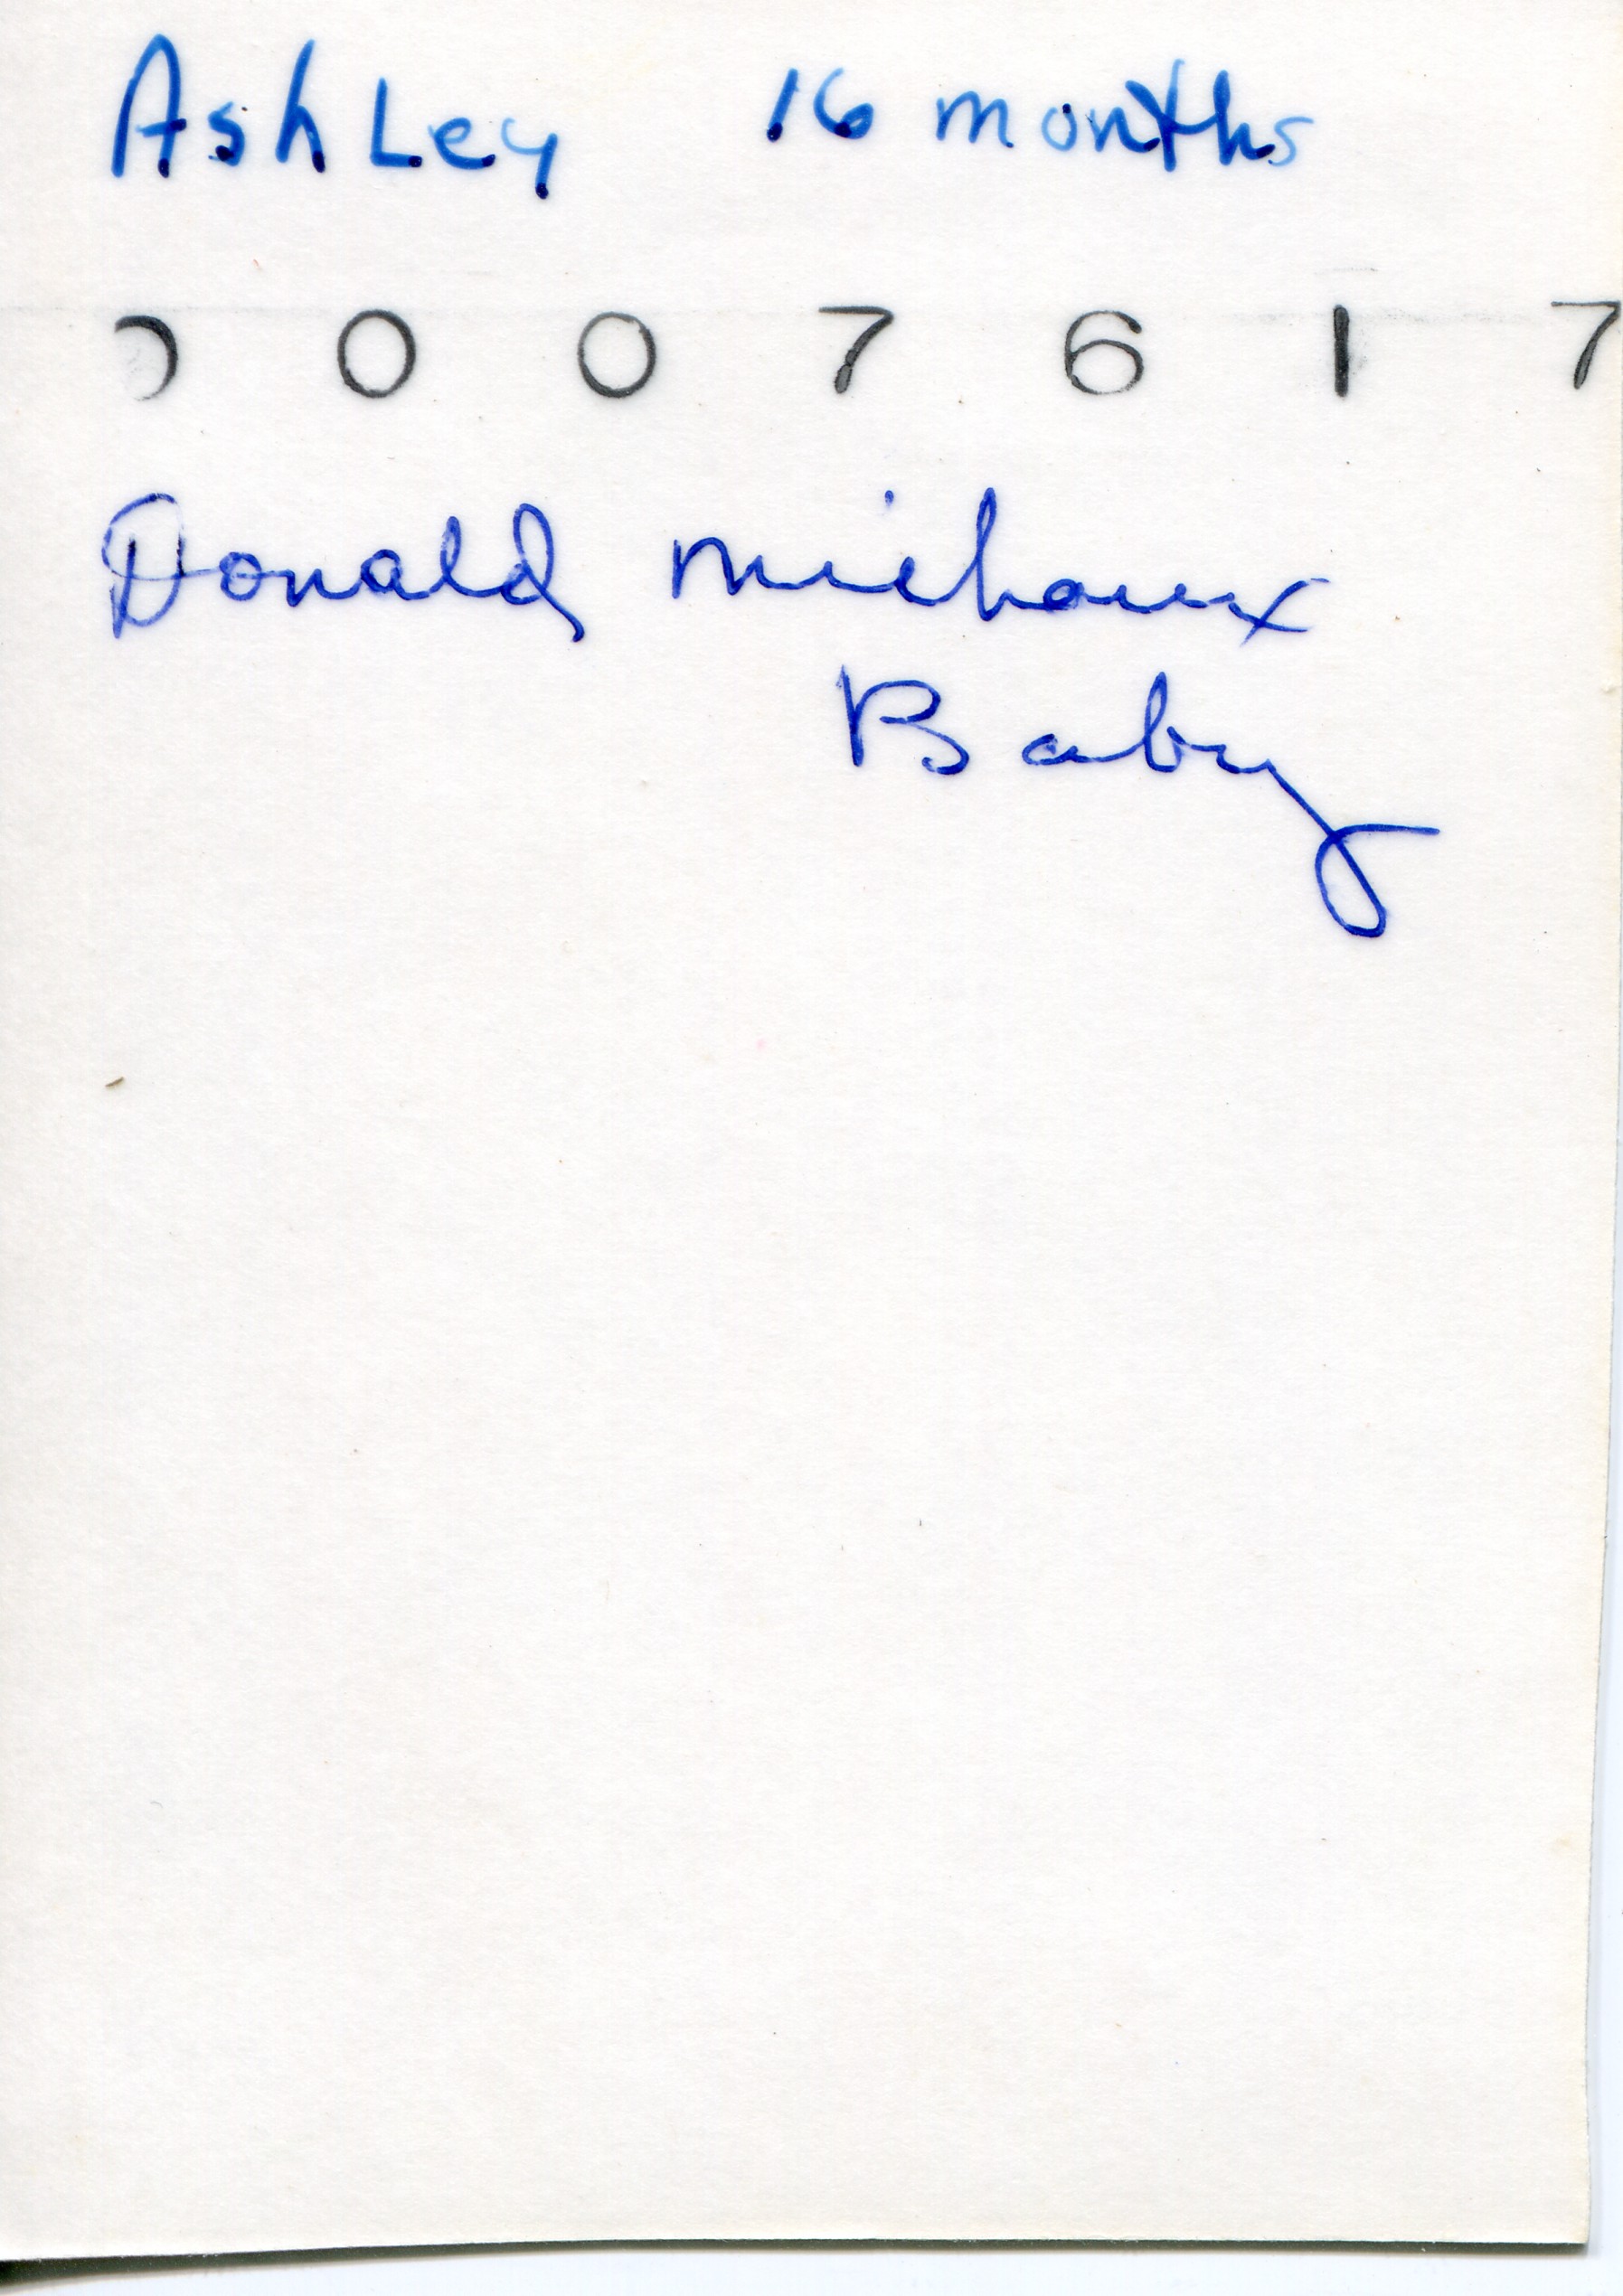 AshLey 16 months
0 0 0 7 6 1 7
Donald Michaux
Baby